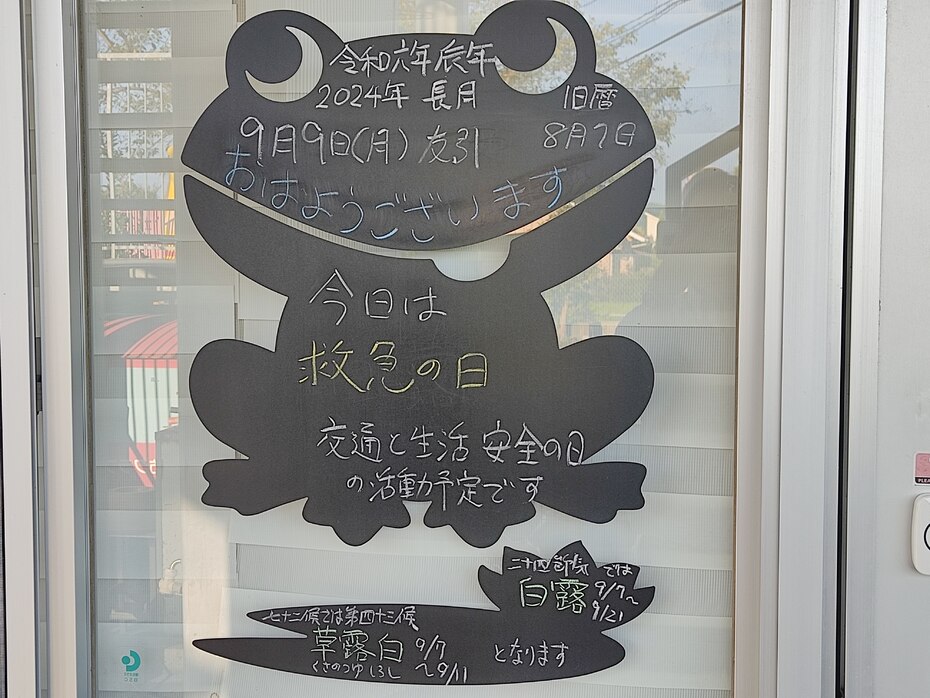 令和六年辰年
2024年 長月
旧暦
8月7日
9月9日(月) 友引
おはようございます
今日は
救急の日
交通と生活 安全の日
の活動予定です
二十四節気では
白露 9/7〜
9/21
七十二候では第四十三候
草露白 9/7
くさのつゆしろし 〜9/11
となります